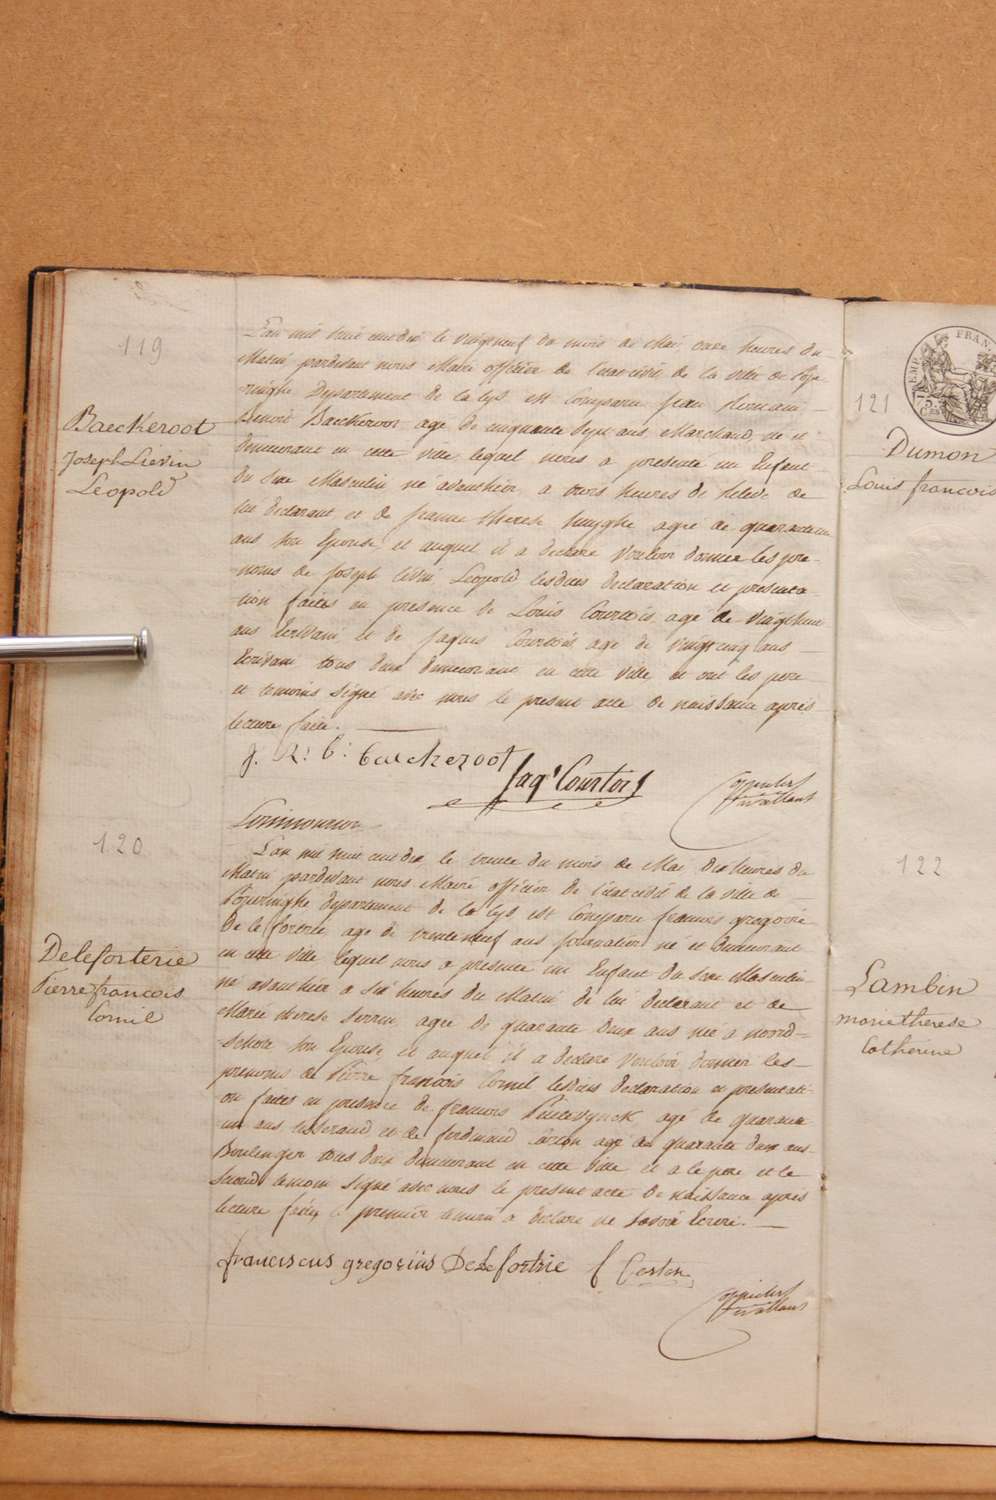 119
Baeckeroot
Joseph Lievin
Leopold
L'an mil huit cent dix le vingt neuf du mois de Mai onze heures du
Matin pardevant nous Maire officier de l'etat civil de la ville de Pope
ringhe Departement de la Lys est Comparu jean
Benoit Baeckeroot agé de cinquante sept ans Marchand, né et
demeurant en cette ville lequel nous a presenté un Enfant
du sexe Masculin né avanthier a trois heures de de
lui declarant et de jeanne therese huyghe agée de quarante un
ans son Epouse, et auquel il a declaré Vouloir donner les pre-
noms de joseph Lievin Leopold lesdites declaration et presenta
tion faites en presence de Louis Courtois, agé de vingt huit
ans Ecrivain et de jaques Courtois agé de vingt cinq ans
Ecrivain tous deux demeurant en cette Ville et ont les pere
et temoins signé avec nous le present acte de naissance après
lecture faite.
j. R: b: baeckeroot
Jaqs Courtois
Ls
120
Deleforterie
Pierre francois
Cornil
L'an mil huit cent dix, le trente du mois de Mai dix heures du
Matin pardevant nous Maire officier de l'état civil de la ville de
Poperinghe departement de la Lys est Comparu francois gregoire
De le forterie agé de trente neuf ans né et demeurant
en cette Ville lequel nous a presenté un Enfant du sexe Masculin
né avanthier a six heures du Matin de lui declarant et de
Marie therese agée de quarante deux ans née a Noord-
schote son Epouse, et auquel il a declaré Vouloir donner les
prenoms de Pierre francois Cornil lesdites declaration et presentati-
on faites en presence de francois agé de quarante
un ans tisserand et de ferdinand Corton agé de quarante deux ans
Boulenger tous deux demeurant en cette Ville et a le pere et le
second temoin signé avec nous le present acte de naissance après
lecture faite, le premier temoin a declaré ne savoir Ecrire.
franciscus gregoriüs De Le fortrie f Corton
121
Dumon
Louis francois
122
Lambin
marie therese
Catherine